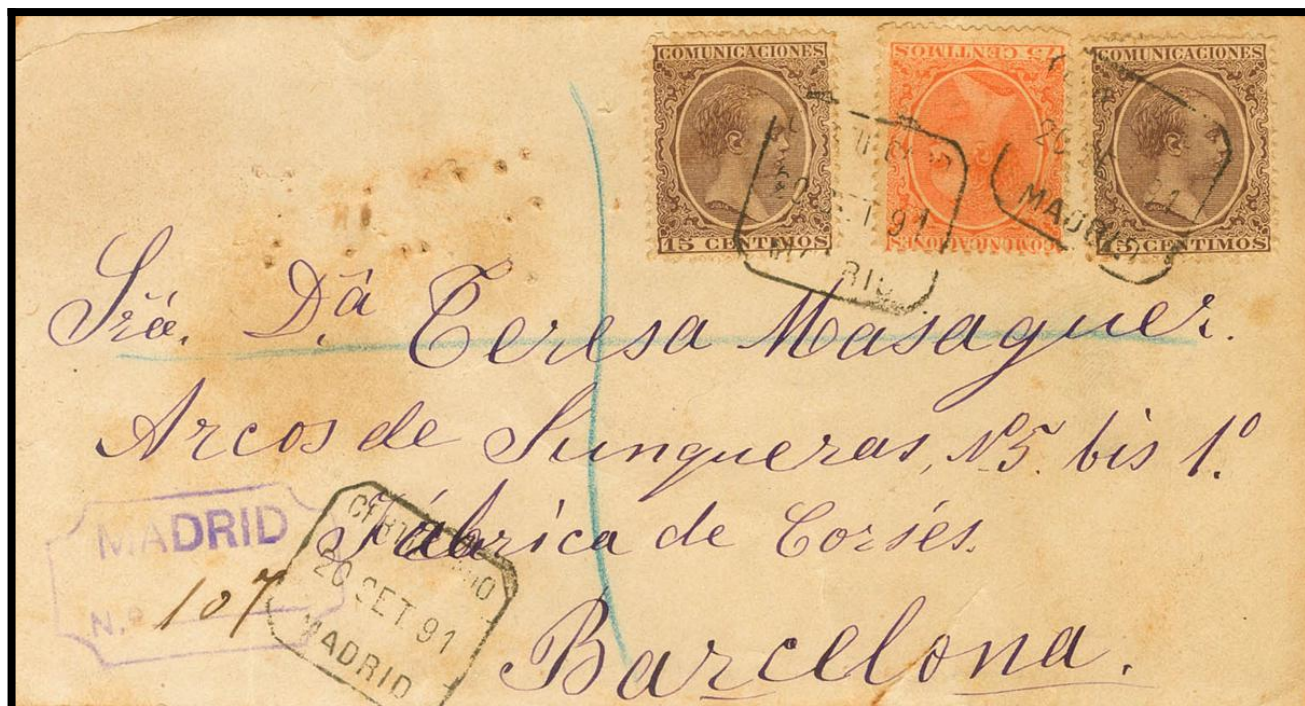 COMUNICACIONES
15 CENTIMOS
75 CENTIMOS
COMUNICACIONES
COMUNICACIONES
15 CENTIMOS
20 SET 91
MADRID
MADRID
Srã. Dª Teresa Masaguer.
Arcos de Junqueras, Nº5. bis 1.º
Fábrica de Corsés.
Barcelona.
MADRID
N.º 107
CERTIFICADO
20 SET. 91
MADRID